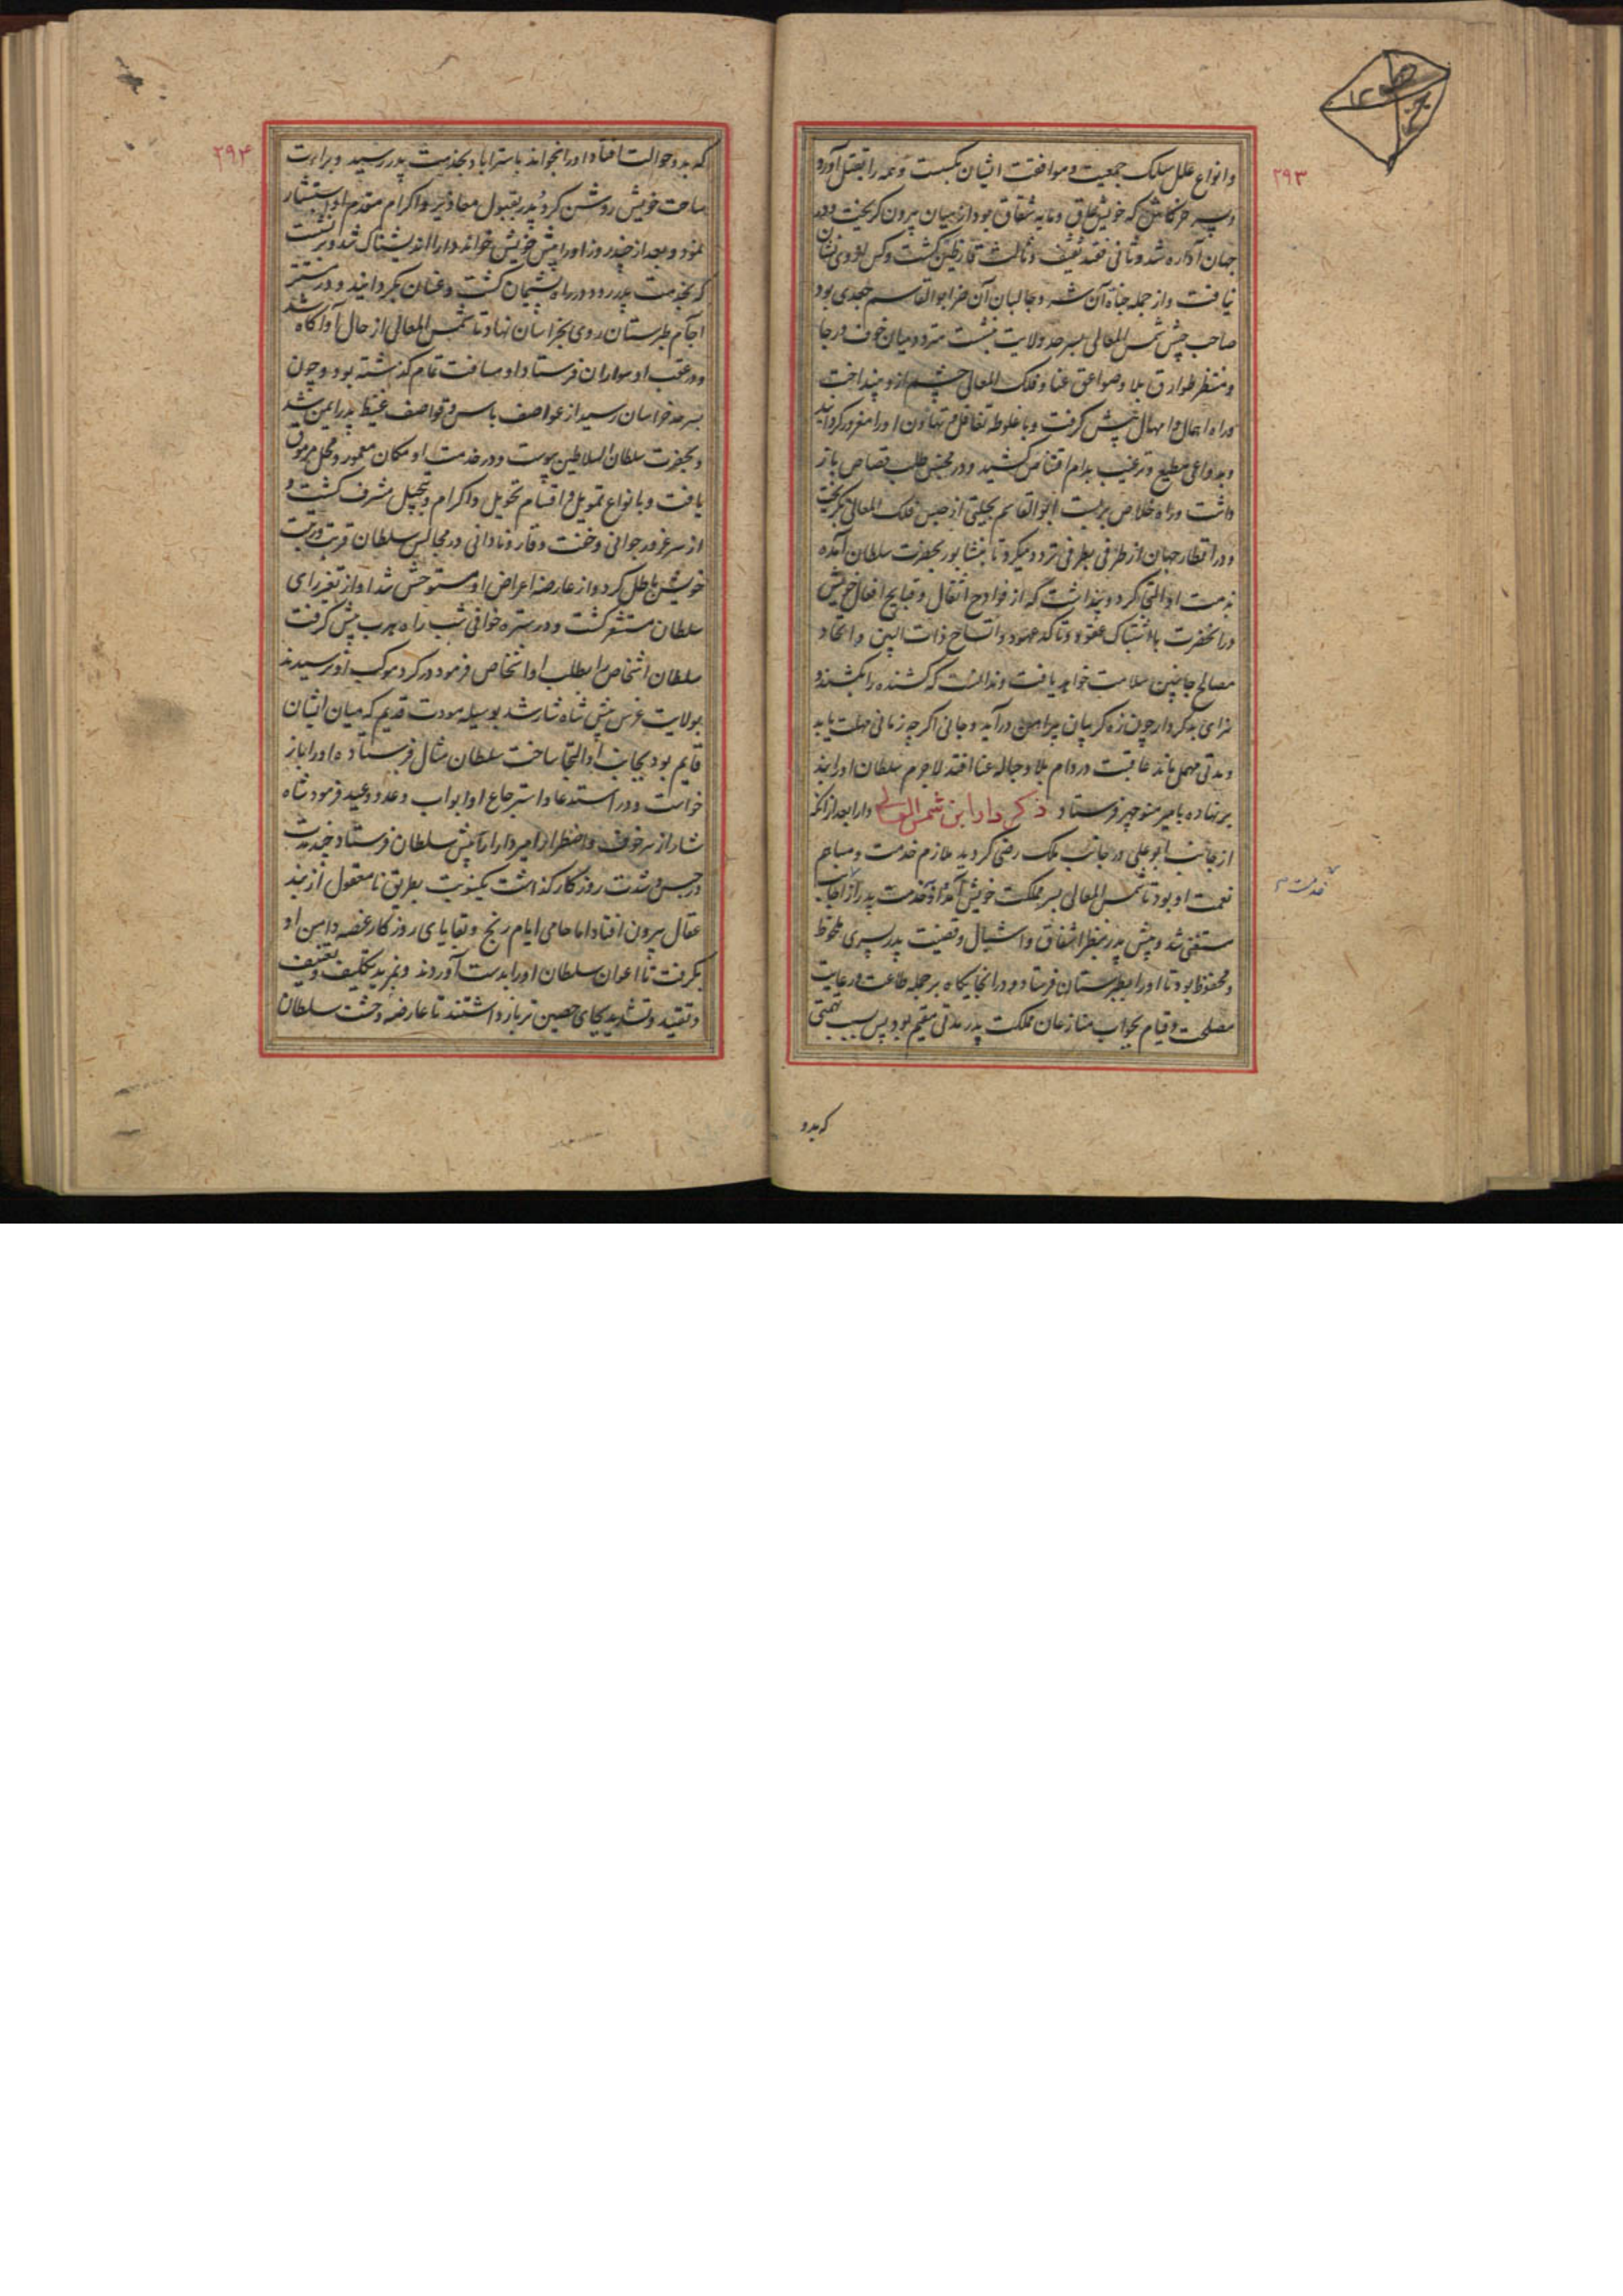 ۲۹۳
وانواع علل سلک جمعیت و موافقت ایشان بکسست و همه را بقتل آورد
و پسر خرکاش که خویش و مایه شقاق بود از میان بیرون کریخت و در
جهان آواره شد و ثانی فقید ثقیف و ثالث قارظین کشت و کس از وی نشان
نیافت و از جمله جناة آن شر و جالبان آن ضر ابوالقاسم جعدی بود
صاحب جیش شمس المعالی بسرحد ولایت نشست متردد میان خوف و رجا
و منتظر طوارق بلا و صواعق عنا و فلک المعالی چشم ازو بینداخت
و راه اهمال و امهال پیش کرفت و باغلوطه تغافل و تهاون او را مغرور کردانید
و بدواعی تطمیع و ترغیب بدام اقتناص کشید و در محبس طلب قصاص باز
داشت و راه خلاص بربست ابوالقاسم بحیلتی از حبس فلک المعالی بکریخت
و در اقطار جهان از طرفی بطرفی تردد میکرد تا بنشابور بحضرت سلطان آمده
بخدمت او التجا کرد و پنداشت که از فوادح اثقال و قبایح افعال خویش
در آنحضرت با اشتباک عقود و تاکد عهود و اتساح ذات البین و اتحاد
مصالح جانبین سلامت خواهد یافت و ندانست که کشنده را بکشند و
سزای بدکردار چون زه کریبان پیراهن درآید و جانی اکرچه زمانی مهلت یابد
و مدتی مهمل ماند عاقبت در دام بلا و حباله عنا افتد لاجرم سلطان او را بند
برنهاده بامیر منوچهر فرستاد ذکر دارا بن شمس المعالی دارا بعد از آنکه
از جانب ابوعلی در جانب ملک رضی کردید ملازم خدمت و مباهم
نعمت او بود تا شمس المعالی بسر مملکت خویش آمد او بخدمت پدر از آنجانب
مستغنی شد و پیش پدر بنظر اشفاق و اشبال و قضیت پدر پسری ملحوظ
و محفوظ بود تا او را بطبرستان فرستاد و در آنجایکاه بر جمله طاعت و رعایت
مصلحت و قیام بجواب منازعان مملکت پدر مدتی مقیم بود پس بسبب تهمتی
خدمت
که بدو
۲۹۴
که بدو حوالت افتاد او را بخواند باستراباد بخدمت پدر رسید و برات
ساحت خویش روشن کرد پدر بقبول معاذیر و اکرام مقدم او استبشار
نمود و بعد از چند روز او را پیش خویش خواند دارا اندیشناک شد و برنشست
که بخدمت پدر رود در راه پشیمان کشت و عنان بکردانید و در ستر
آجام طبرستان روی بخراسان نهاد و تا شمس المعالی از حال او آکاه شد
و در عقب او سواران فرستاد او مسافت تمام کذشته بود و چون
بسرحد خراسان رسید از عواصف باس و قواصف غیظ پدر ایمن شد
و بحضرت سلطان السلاطین پیوست و در خدمت او مکان معمور و محل مرموق
یافت و بانواع تمویل و اقسام تخویل و اکرام و تبجیل مشرف کشت و
از سر غرور جوانی و خفت وقار و نادانی در مجالس سلطان قربت و رتبت
خویش باطل کرد و از عارضه اعراض او مستوحش شد او از تغیر رای
سلطان مستشعر کشت و در ستره خوافی شب راه هرب پیش کرفت
سلطان اشخاص را بطلب او اشخاص فرمود در کرد موکب او نرسیدند
بولایت غرش پیش شاه شار شد بوسیله مودت قدیم که میان ایشان
قایم بود بجانب او التجا ساخت سلطان مثال فرستاده او را باز
خواست و در استدعا و استرجاع او ابواب وعد و وعید فرمود شاه
شار از سر خوف و اضطرار امیر دارا را پیش سلطان فرستاد چند مدت
در حبس و شدت روزکار کذاشت یکنوبت بطریق نامعقول از بند
عقال بیرون افتاد اما حامی ایام رنج و بقایای روزکار غصه دامن او
بکرفت تا اعوان سلطان او را بدست آوردند و بمزید تکلیف و تعنیف
و تقیید و تشدید بجای حصین تر بازداشتند تا عارضه وحشت سلطان